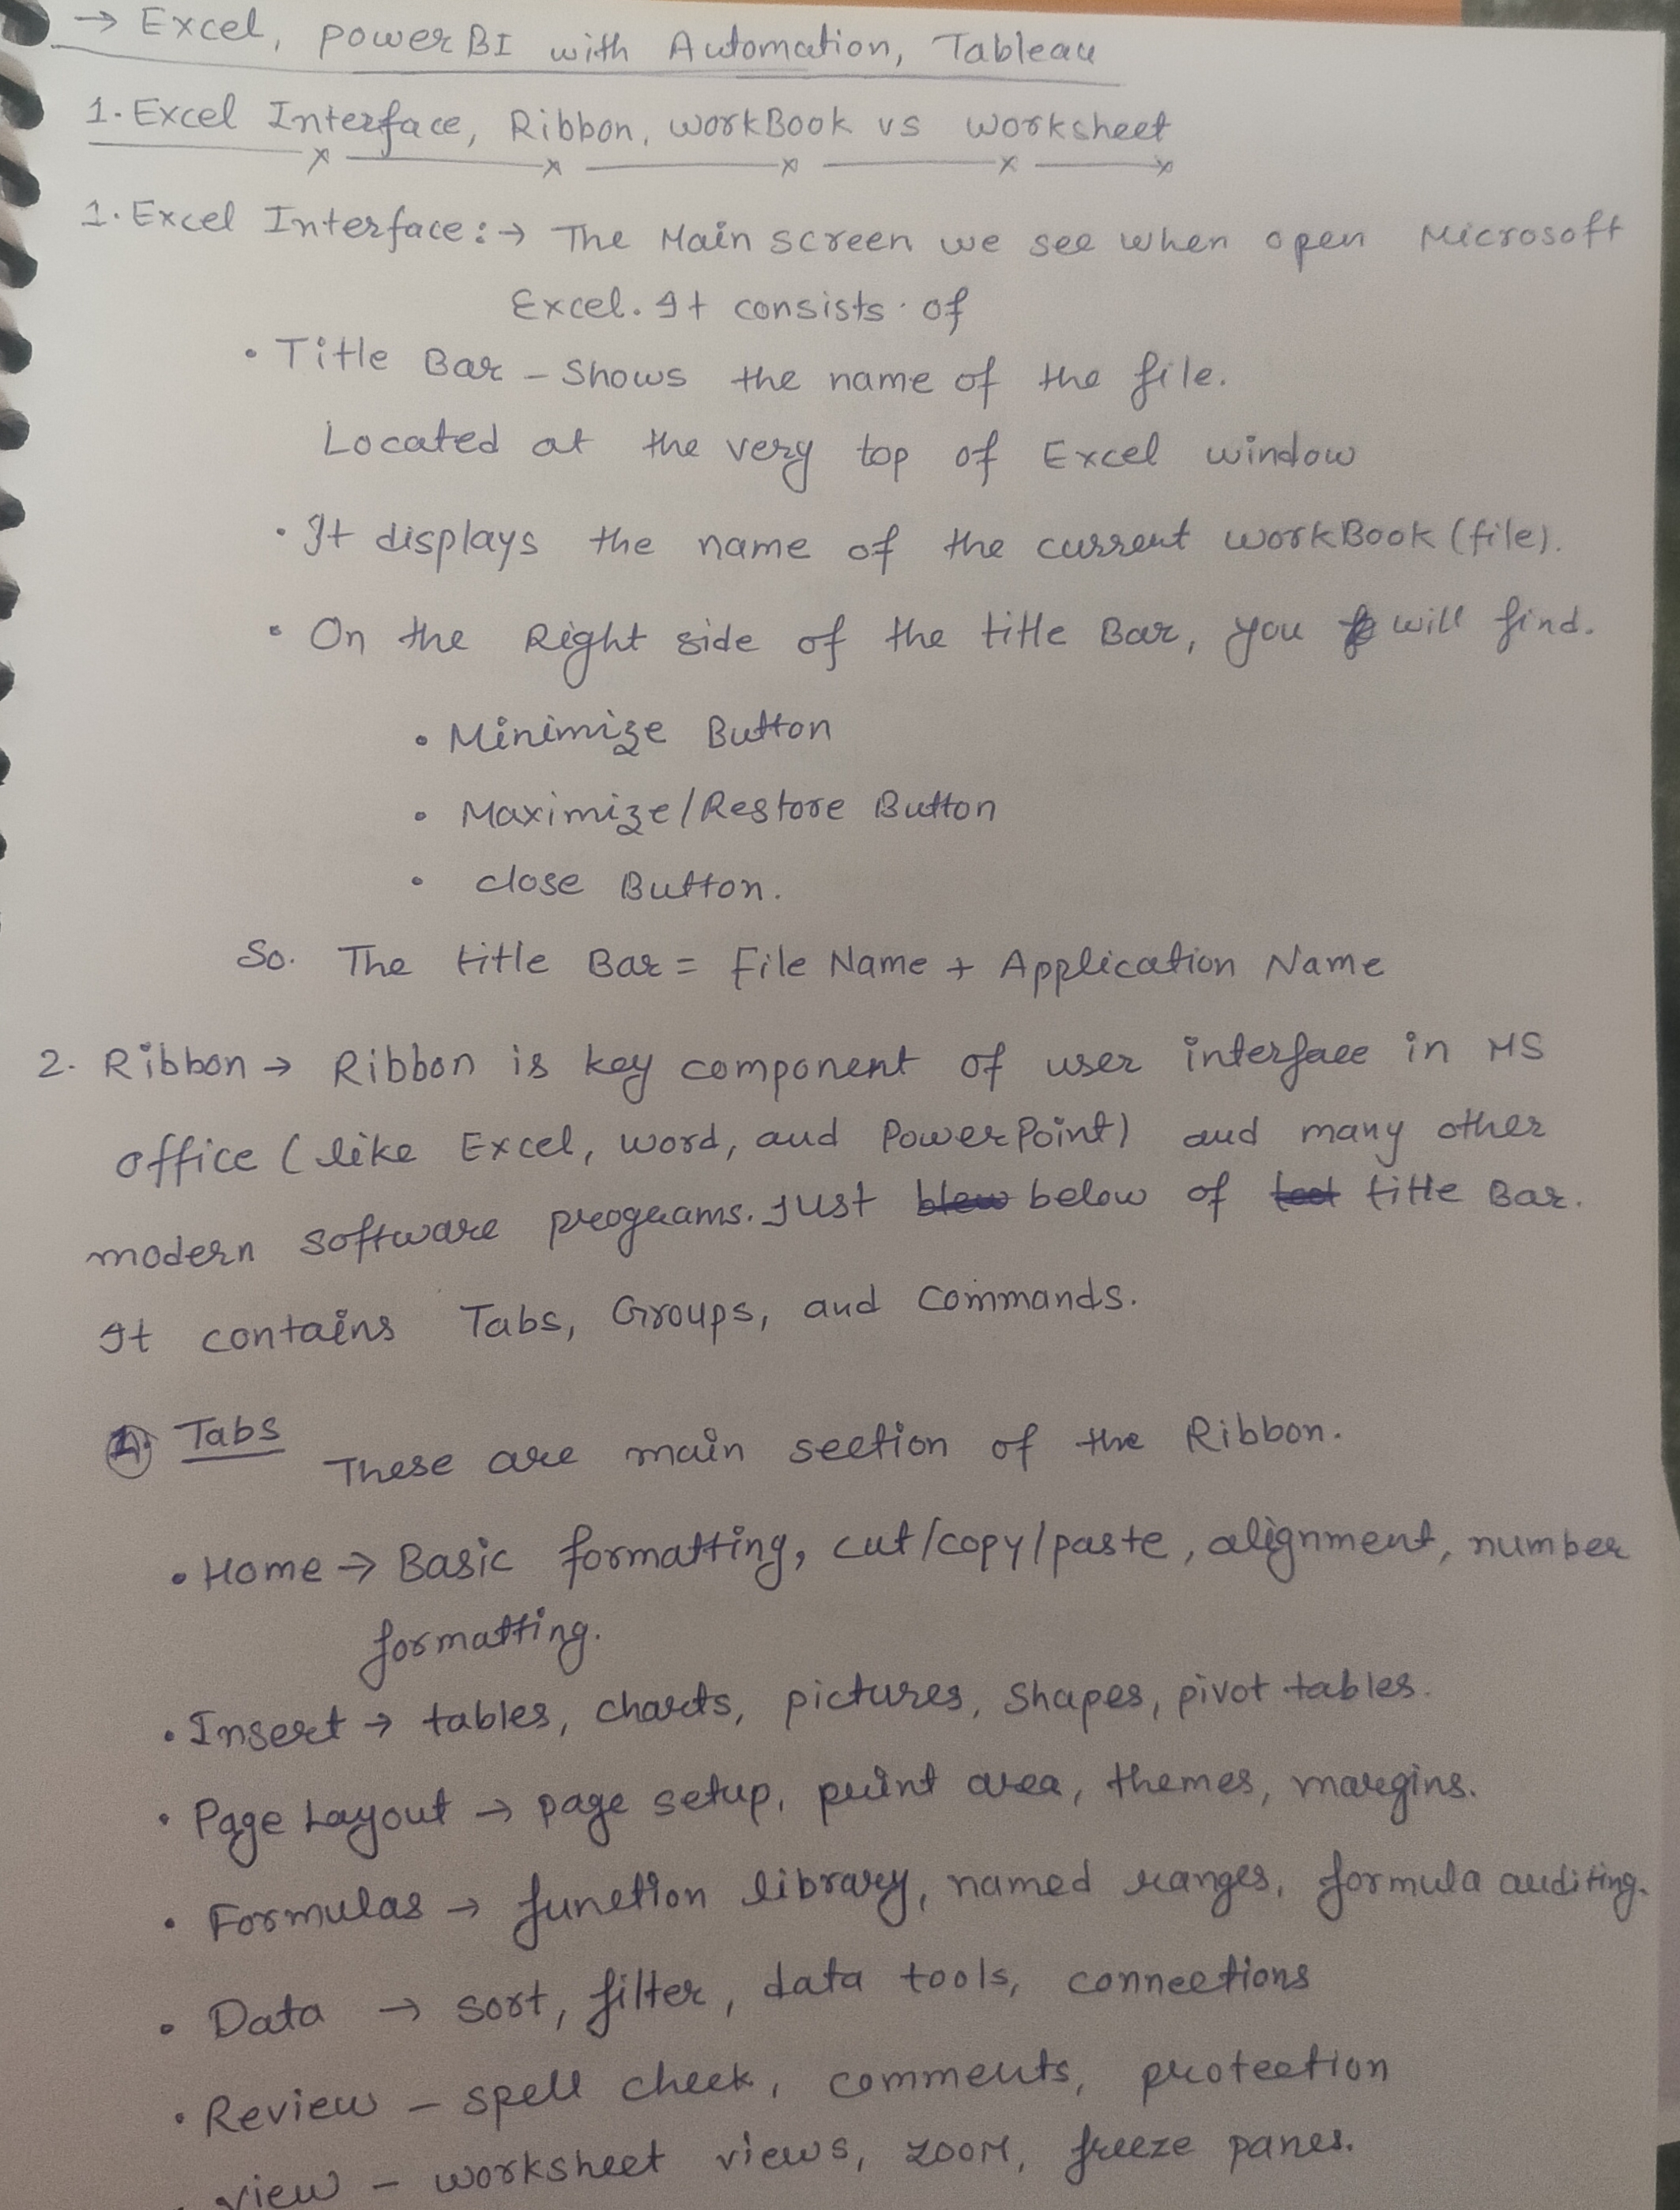 → Excel, powerBI with Automation, Tableau
1. Excel Interface, Ribbon, workBook vs worksheet
1. Excel Interface :→ The Main screen we see when open Microsoft
Excel. It consists of
• Title Bar – Shows the name of the file.
Located at the very top of Excel window
• It displays the name of the current workBook (file).
• On the Right side of the title Bar, you will find.
• Minimize Button
• Maximize/Restore Button
• close Button.
So. The title Bar = File Name + Application Name
2. Ribbon → Ribbon is key component of user interface in MS
office (like Excel, word, and PowerPoint) and many other
modern software programs. Just blew below of title Bar.
It contains Tabs, Groups, and Commands.
1. Tabs These are main section of the Ribbon.
• Home → Basic formatting, cut/copy/paste, alignment, number
formatting.
• Insert → tables, charts, pictures, shapes, pivot tables.
• Page Layout → page setup, print area, themes, margins.
• Formulas → function library, named ranges, formula auditing.
• Data → sort, filter, data tools, connections
• Review – spell check, comments, protection
• view – worksheet views, zoom, freeze panes.